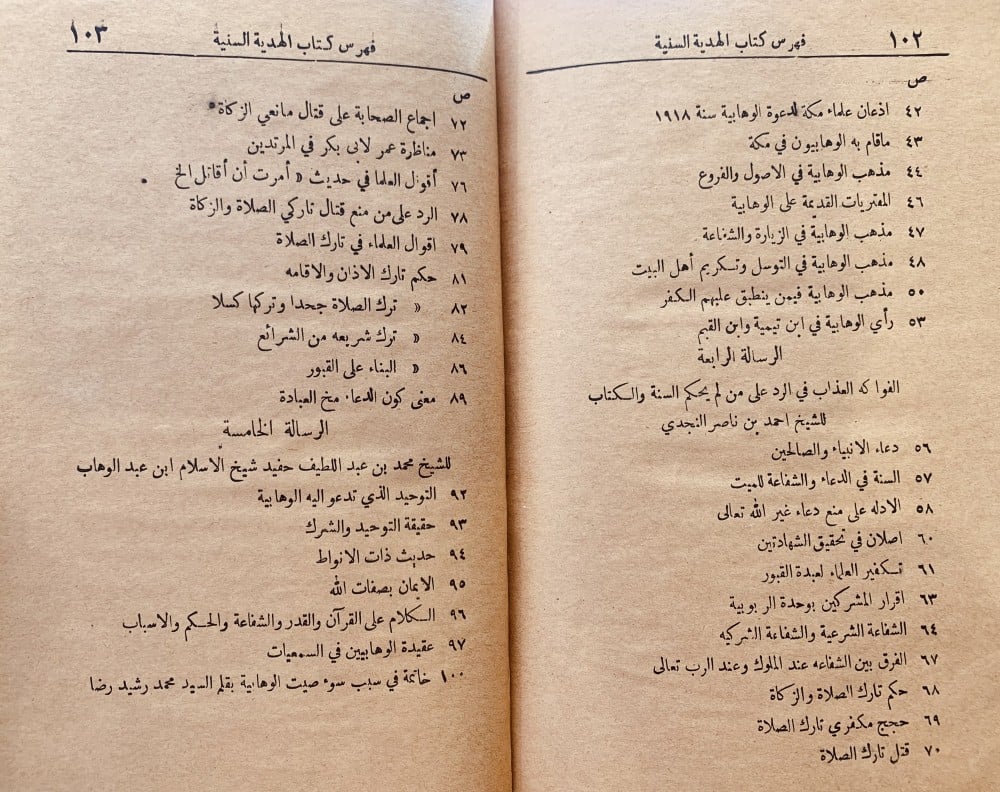 ١٠٢ فهرس كتاب الهدية السنية
ص
٤٢ اذعان علماء مكة لدعوة الوهابية سنة ١٩١٨
٤٣ ماقام به الوهابيون في مكة
٤٤ مذهب الوهابية في الاصول والفروع
٤٦ المفتريات القديمة على الوهابية
٤٧ مذهب الوهابية في الزيارة والشفاعة
٤٨ مذهب الوهابية في التوسل وتكريم أهل البيت
٥٠ مذهب الوهابية فيمن ينطبق عليهم الكفر
٥٣ رأي الوهابية في ابن تيمية وابن القيم
الرسالة الرابعة
الفواكه العذاب في الرد على من لم يحكم السنة والكتاب
للشيخ احمد بن ناصر النجدي
٥٦ دعاء الانبياء والصالحين
٥٧ السنة في الدعاء والشفاعة للميت
٥٨ الادله على منع دعاء غير الله تعالى
٦٠ اصلان في تحقيق الشهادتين
٦١ تكفير العلماء لعبدة القبور
٦٣ اقرار المشركين بوحدة الربوبية
٦٤ الشفاعة الشرعية والشفاعة الشركيه
٦٧ الفرق بين الشفاعه عند الملوك وعند الرب تعالى
٦٨ حكم تارك الصلاة والزكاة
٦٩ حجج مكفري تارك الصلاة
٧٠ قتل تارك الصلاة
فهرس كتاب الهدية السنية ١٠٣
ص
٧٢ اجماع الصحابة على قتال مانعي الزكاة
٧٣ مناظرة عمر لابى بكر في المرتدين
٧٦ أقوال العلما في حديث « أمرت أن أقاتل الخ
٧٨ الرد على من منع قتال تاركي الصلاة والزكاة
٧٩ اقوال العلماء في تارك الصلاة
٨١ حكم تارك الاذان والاقامه
٨٢ « ترك الصلاة جحدا وتركها كسلا
٨٤ « ترك شريعه من الشرائع
٨٦ « البناء على القبور
٨٩ معنى كون الدعاء مخ العبادة
الرسالة الخامسة
للشيخ محمد بن عبد اللطيف حفيد شيخ الاسلام ابن عبد الوهاب
٩٢ التوحيد الذي تدعو اليه الوهابية
٩٣ حقيقة التوحيد والشرك
٩٤ حديث ذات الانواط
٩٥ الايمان بصفات الله
٩٦ الكلام على القرآن والقدر والشفاعة والحكم والاسباب
٩٧ عقيدة الوهابيين في السمعيات
١٠٠ خاتمة في سبب سوء صيت الوهابية بقلم السيد محمد رشيد رضا